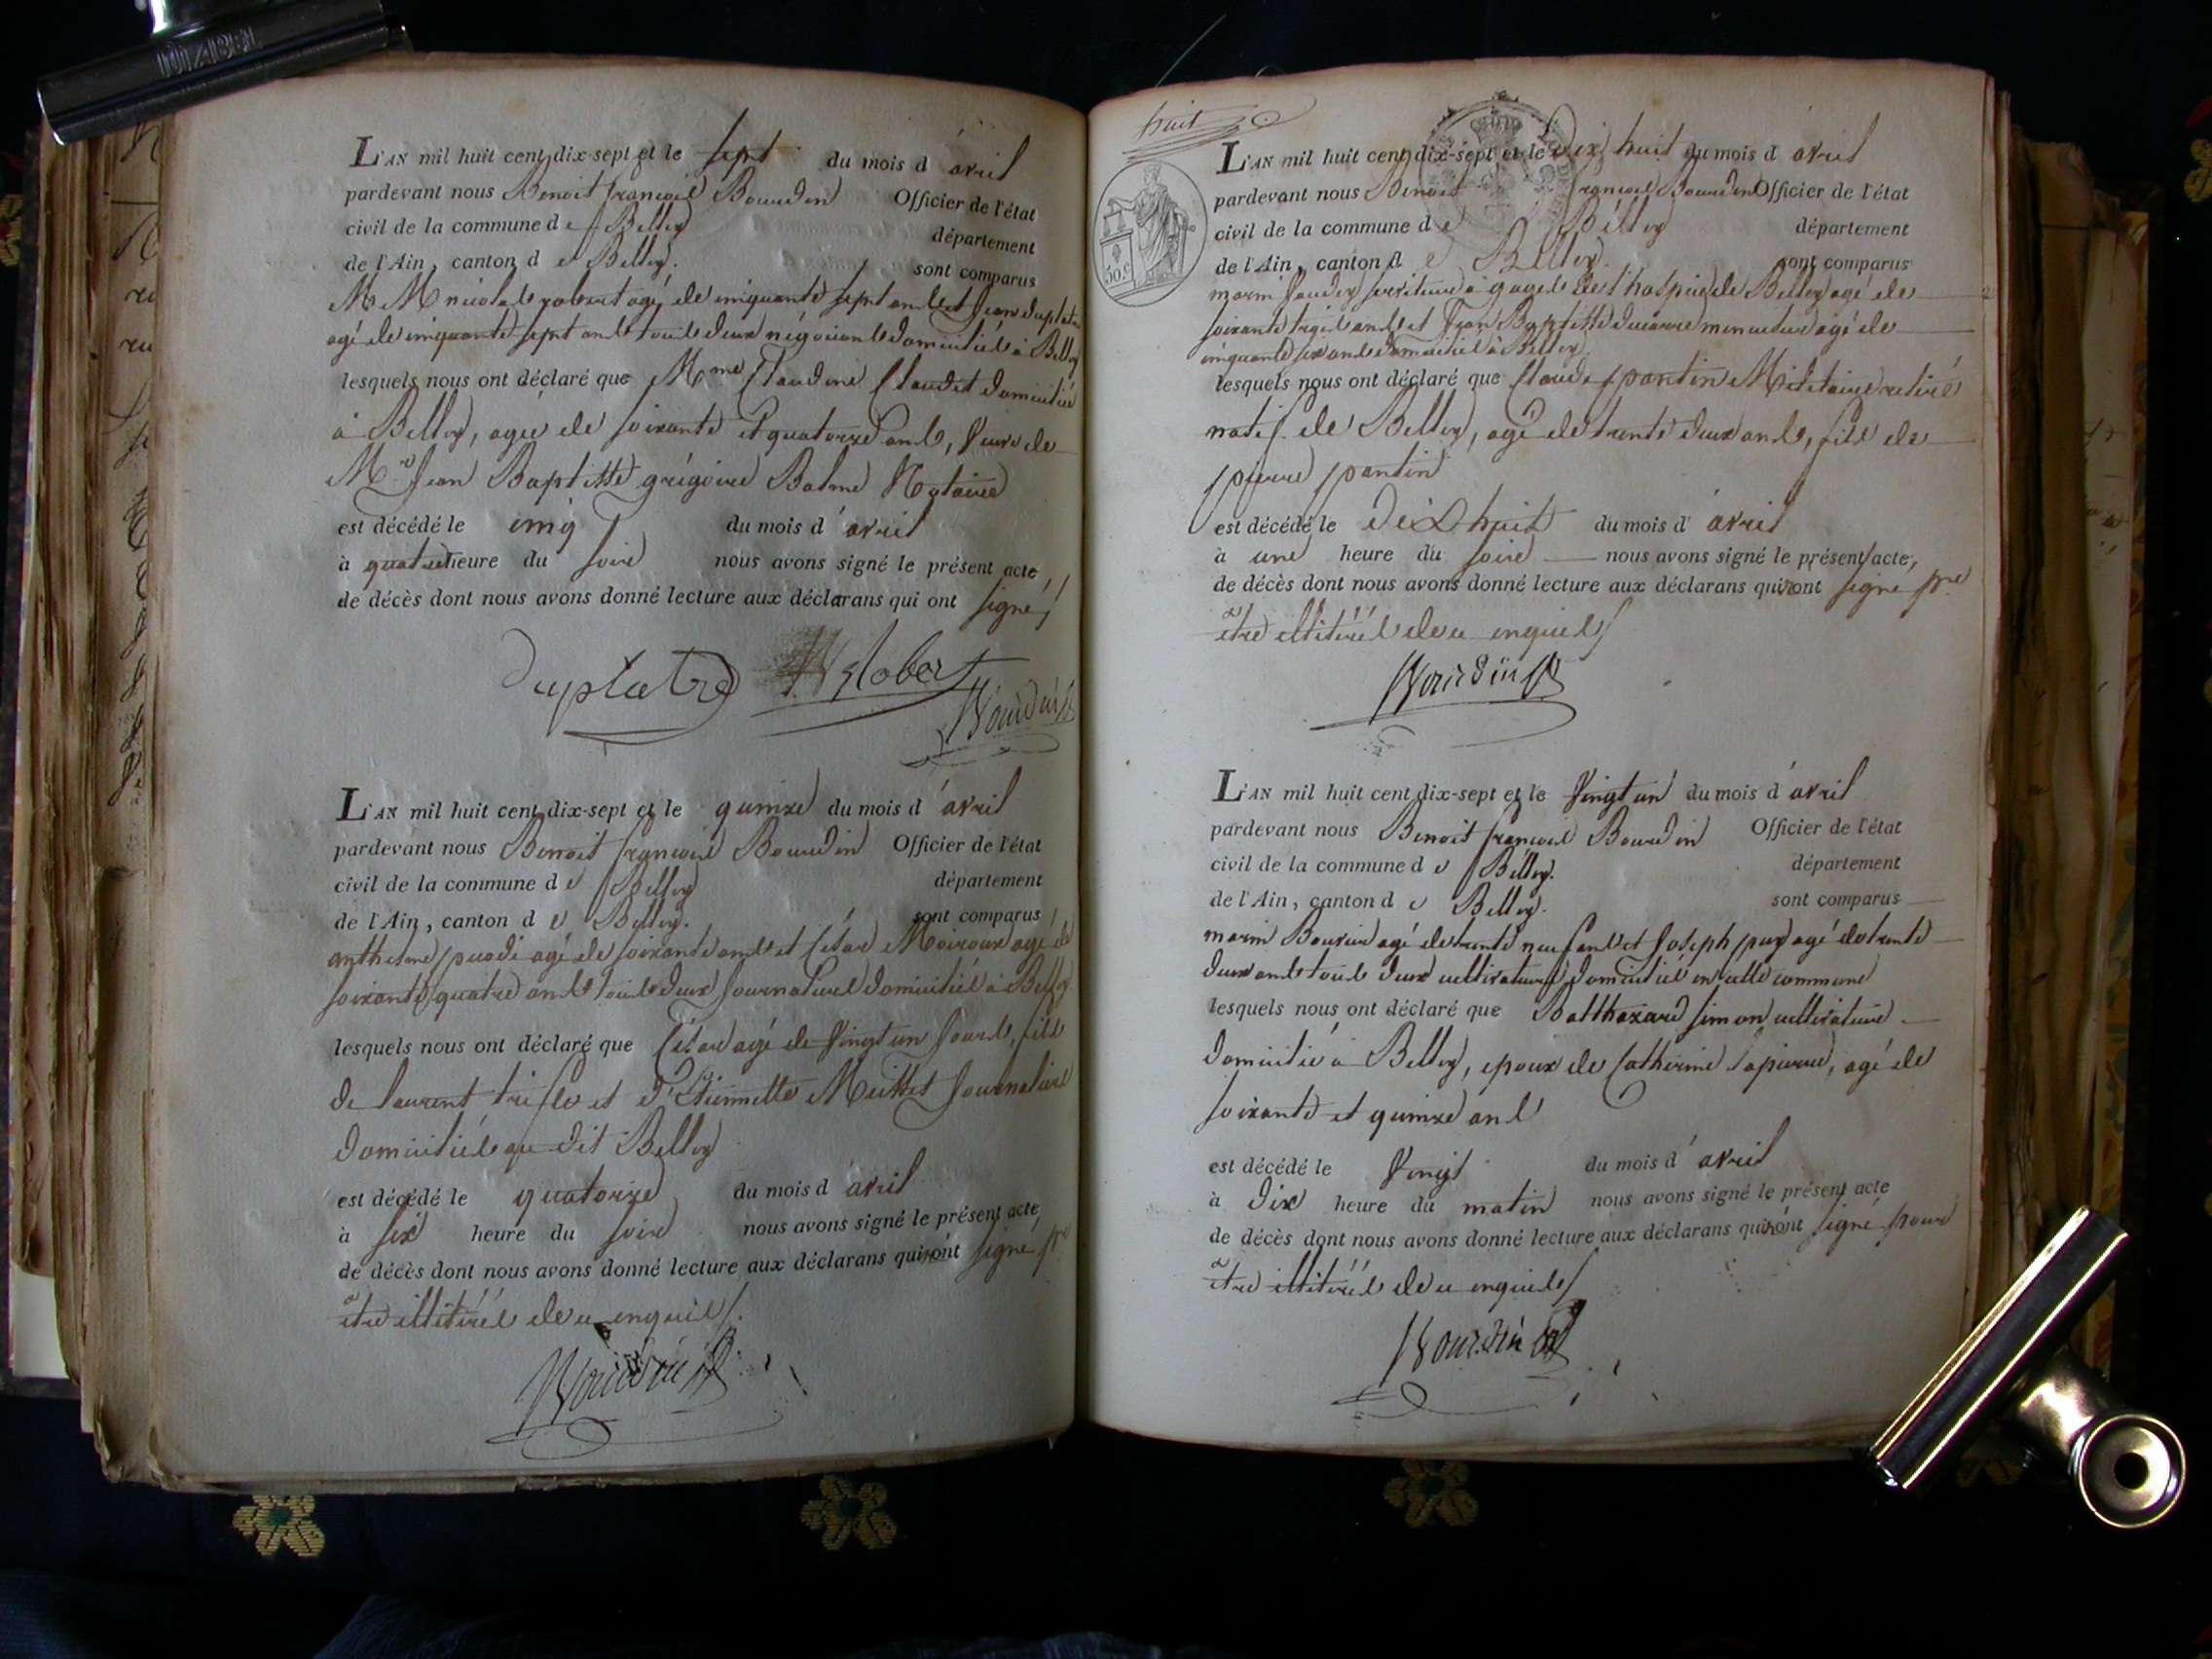 L'AN mil huit cent dix-sept et le sept du mois d'avril
pardevant nous Benoit françois Bourdin Officier de l'état
civil de la commune de Belley département
de l'Ain, canton de Belley. sont comparus
MM nicolas robert agé de cinquante sept ans et Jean duplatre
agé de cinquante sept ans tous deux négocians domiciliés à Belley
lesquels nous ont déclaré que Mme Claudine Claudet domiciliée
à Belley, agée de soixante et quatorze ans, veuve de
Mr Jean Baptiste grégoire Balme Notaire
est décédé le cinq du mois d'avril
à quatre heure du soir nous avons signé le présent acte
de décès dont nous avons donné lecture aux déclarans qui ont signé,
Duplatre N Robert
Bourdin
L'AN mil huit cent dix-sept et le quinze du mois d'avril
pardevant nous Benoit françois Bourdin Officier de l'état
civil de la commune de Belley département
de l'Ain, canton de Belley. sont comparus
anthelme agé de soixante ans et César Moiroux agé de
soixante quatre ans tous deux Journaliers domiciliés à Belley
lesquels nous ont déclaré que César agé de vingt un Jours, fils
de laurent et d'Etiennette Journaliers
domiciliés au dit Belley
est décédé le quatorze du mois d'avril
à six heure du soir nous avons signé le présent acte
de décès dont nous avons donné lecture aux déclarans qui n'ont signé pr
être illitérés de ce enquis.
Bourdin
huit
50.c
L'AN mil huit cent dix-sept et le dix huit du mois d'avril
pardevant nous Benoit françois Bourdin Officier de l'état
civil de la commune de Belley département
de l'Ain, canton de Belley. sont comparus
marin serviteur à gages de l'hospice de Belley agé de
soixante treize ans et Jean Baptiste ducarre menuisier agé de
cinquante six ans domiciliés à Belley.
lesquels nous ont déclaré que Claude pantin Militaire retiré
natif de Belley, agé de trente deux ans, fils de
pierre pantin
est décédé le dix huit du mois d'avril
à une heure du soir nous avons signé le présent acte,
de décès dont nous avons donné lecture aux déclarans qui n'ont signé pr
être illitérés de ce enquis
Bourdin
L'AN mil huit cent dix-sept et le vingt un du mois d'avril
pardevant nous Benoit françois Bourdin Officier de l'état
civil de la commune de Belley. département
de l'Ain, canton de Belley. sont comparus
marin Bouvier agé de trente neuf ans et Joseph puy agé de trente
deux ans tous deux cultivateurs domiciliés en cette commune
lesquels nous ont déclaré que Balthazard simon cultivateur
domicilié à Belley, epoux de Catherine lapierre, agé de
soixante et quinze ans
est décédé le vingt du mois d'avril
à dix heure du matin nous avons signé le présent acte
de décès dont nous avons donné lecture aux déclarans qui n'ont signé pour
être illitérés de ce enquis
Bourdin